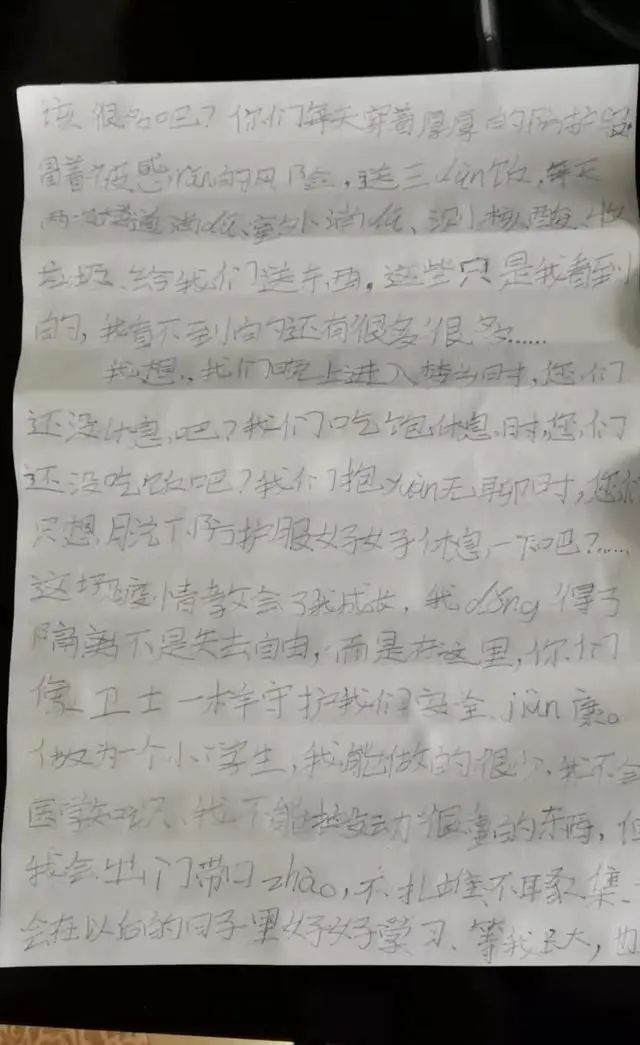 该很多吧？你们每天穿着厚厚的防护服
冒着被感rǎn的风险，送三dùn饭，每天
两次楼道消dú、室外消dú、测核酸、收
垃圾、给我们送东西。这些只是我看到
的，我看不到的还有很多很多……
我想，我们晚上进入梦乡时，您们
还没休息吧？我们吃饱休息时，您们
还没吃饭吧？我们抱yuàn无聊时，您们
只想脱下防护服好好休息一下吧？……
这场疫情教会了我成长，我dǒng得了
隔离不是失去自由，而是在这里，你们
像卫士一样守护我们安全、jiàn康。
做为一个小学生，我能做的很少，我不会
医学知识、我不能搬动很重的东西，但
我会出门带口zhào，不扎堆不聚集、
会在以后的日子里好好学习、等我长大，也